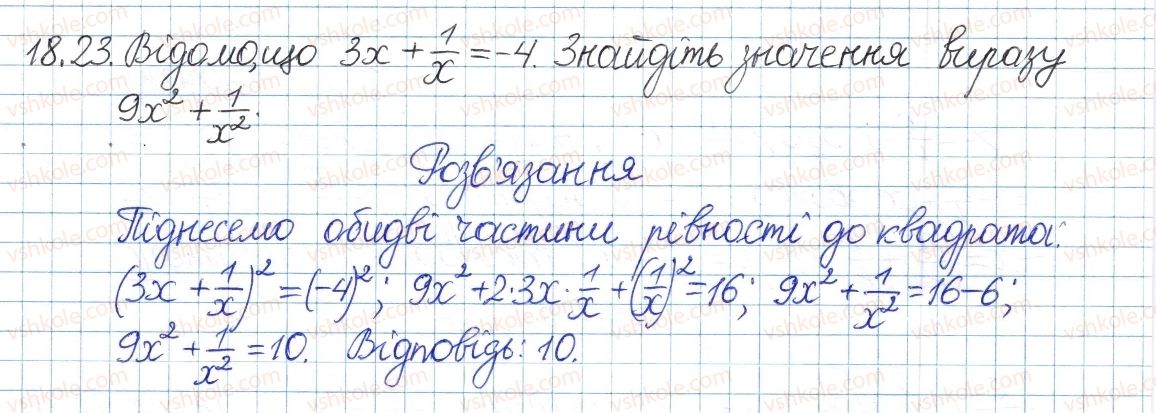 18.23. Відомо, що 3x + 1/x = -4. Знайдіть значення виразу
9x² + 1/x².
Розв'язання
Піднесемо обидві частини рівності до квадрата:
(3x + 1/x)² = (-4)²; 9x² + 2·3x·1/x + (1/x)² = 16; 9x² + 1/x² = 16 - 6;
9x² + 1/x² = 10. Відповідь: 10.